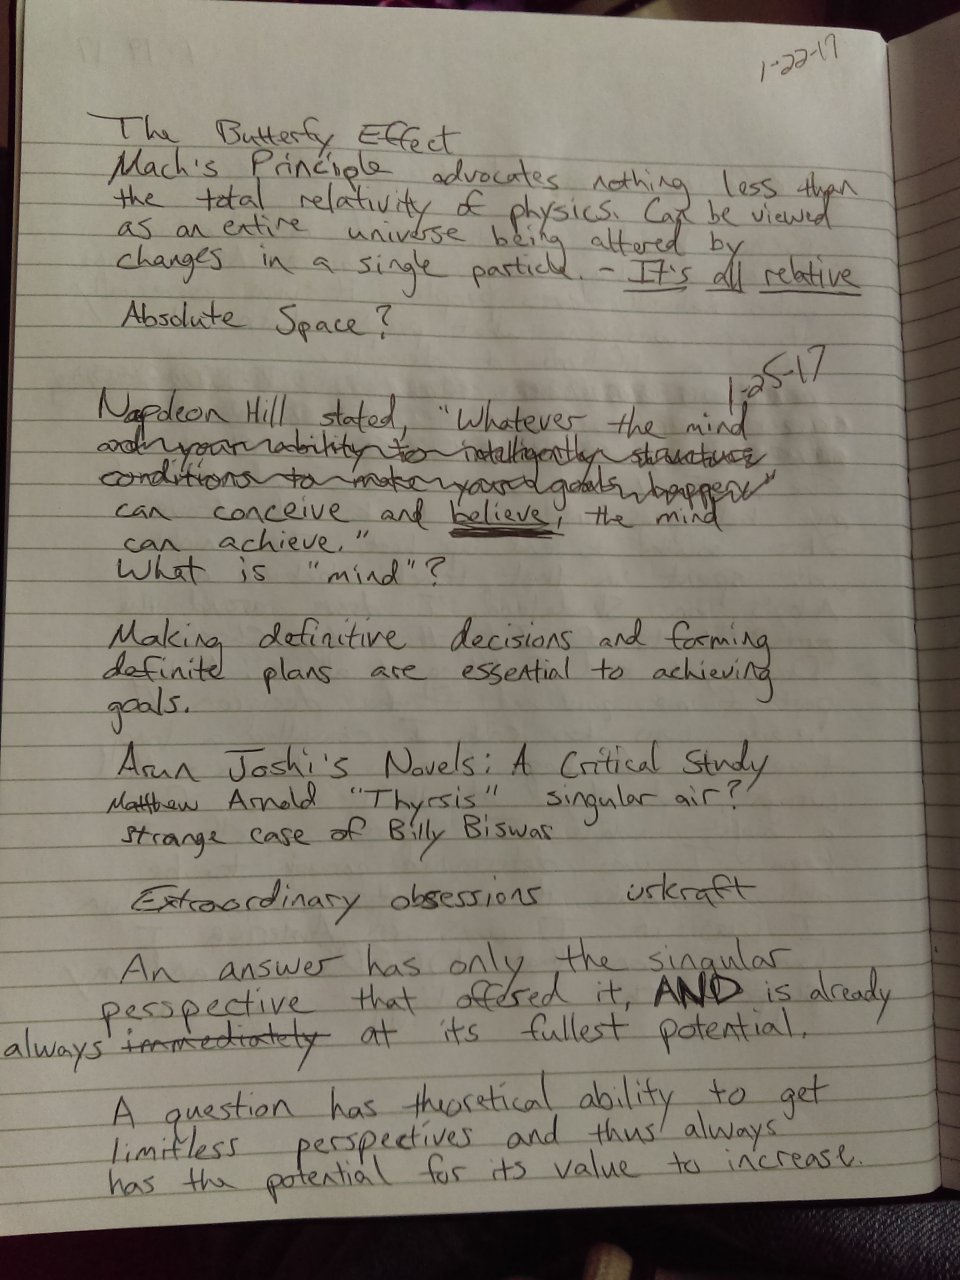 1-22-17
The Butterfy Effect
Mach's Principle advocates nothing less than
the total relativity of physics. Can be viewed
as an entire universe being altered by
changes in a single particle. - It's all relative
Absolute Space?
1-25-17
Napoleon Hill stated, "Whatever the mind
and your ability to intelligently structure
conditions to make your goals happen"
can conceive and believe, the mind
can achieve."
What is "mind"?
Making definitive decisions and forming
definite plans are essential to achieving
goals.
Arun Joshi's Novels: A Critical Study
Matthew Arnold "Thyrsis" singular air?
Strange case of Billy Biswas
Extraordinary obsessions urkraft
An answer has only the singular
perspective that offered it, AND is already
always immediately at its fullest potential.
A question has theoretical ability to get
limitless perspectives and thus always
has the potential for its value to increase.